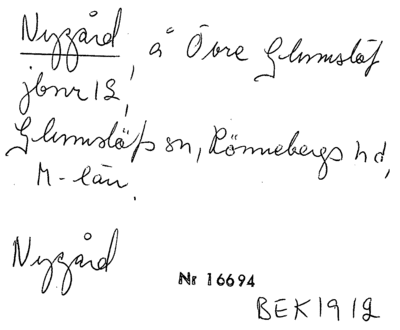 Nygård, å Övre Glumslöf
jbnr 12,
Glumslöfs sn, Rönnebergs hd,
M-län.
Nygård
Nr 16694
BEK 1912